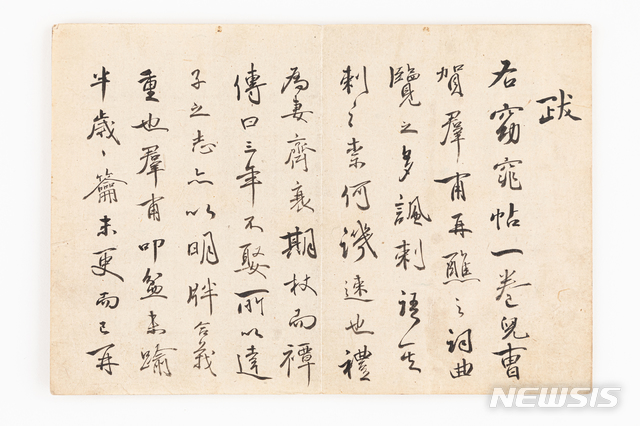 跋
右窈窕帖一卷兒曹
賀羣甫再醮之詞曲
覽之多諷刺語其
刺之柰何譏速也禮
爲妻齊衰期杖而禫
傳曰三年不娶所以達
子之志亦以明牉合義
重也羣甫叩盆未踰
半歲〻籥未更而已再
NEWSIS